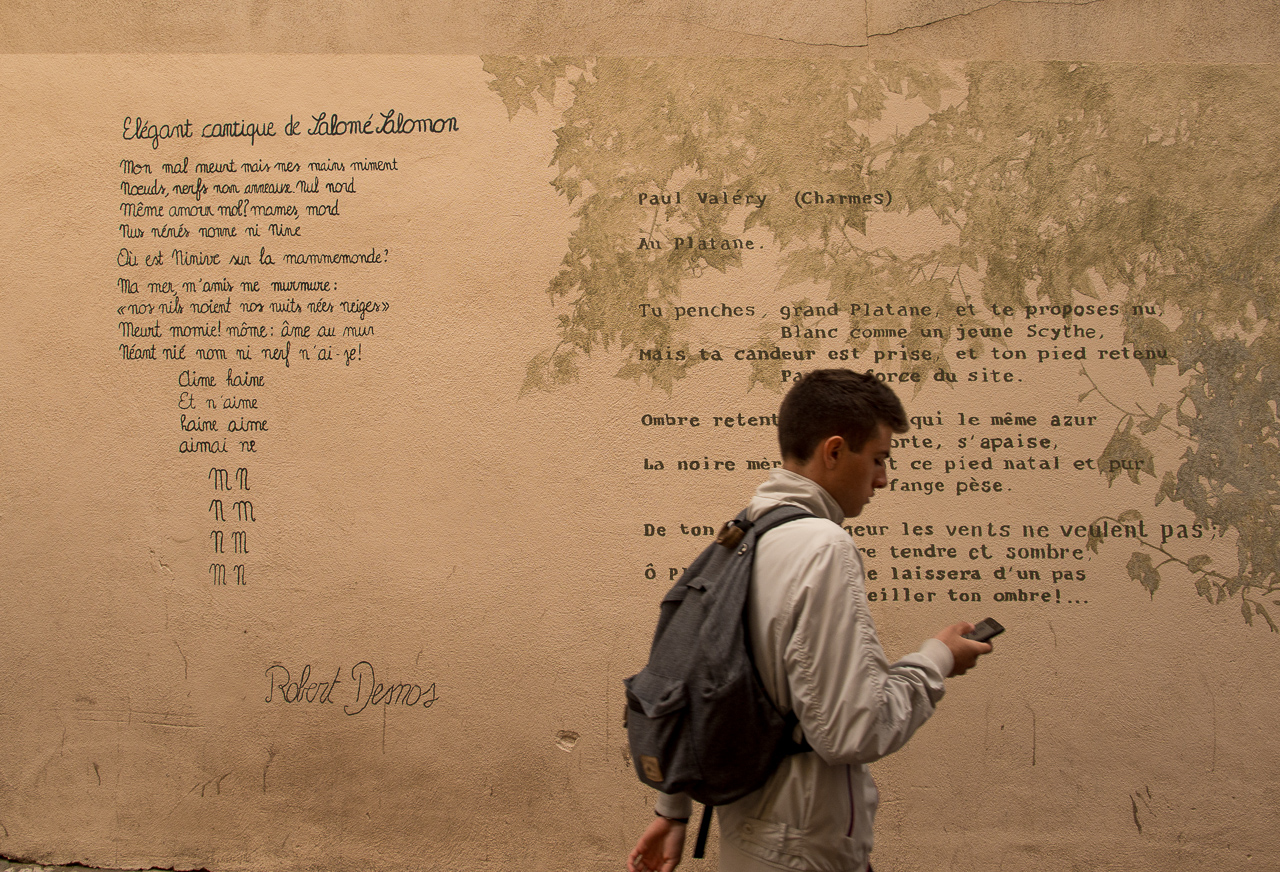 Elégant cantique de Salomé Salomon
Mon mal meurt mais mes mains miment
Nœuds, nerfs non anneaux. Nul nord
Même amour mol? mames, mord
Nus nénés nonne ni Nine
Où est Ninive sur la mammemonde?
Ma mer, m'amis me murmure:
«nos nils noient nos nuits nées neiges»
Meurt momie! môme: âme au mur
Néant nié nom ni nerf n'ai-je!
Aime haine
Et n'aime
haine aime
aimai ne
M N
N M
N M
M N
Robert Desnos
Paul Valéry (Charmes)
Au Platane.
Tu penches, grand Platane, et te proposes nu,
Blanc comme un jeune Scythe,
Mais ta candeur est prise, et ton pied retenu
force du site.
Ombre qui le même azur
s'apaise,
La noire ce pied natal et pur
fange pèse.
De ton les vents ne veulent pas;
tendre et sombre,
Ô laissera d'un pas
ton ombre!...